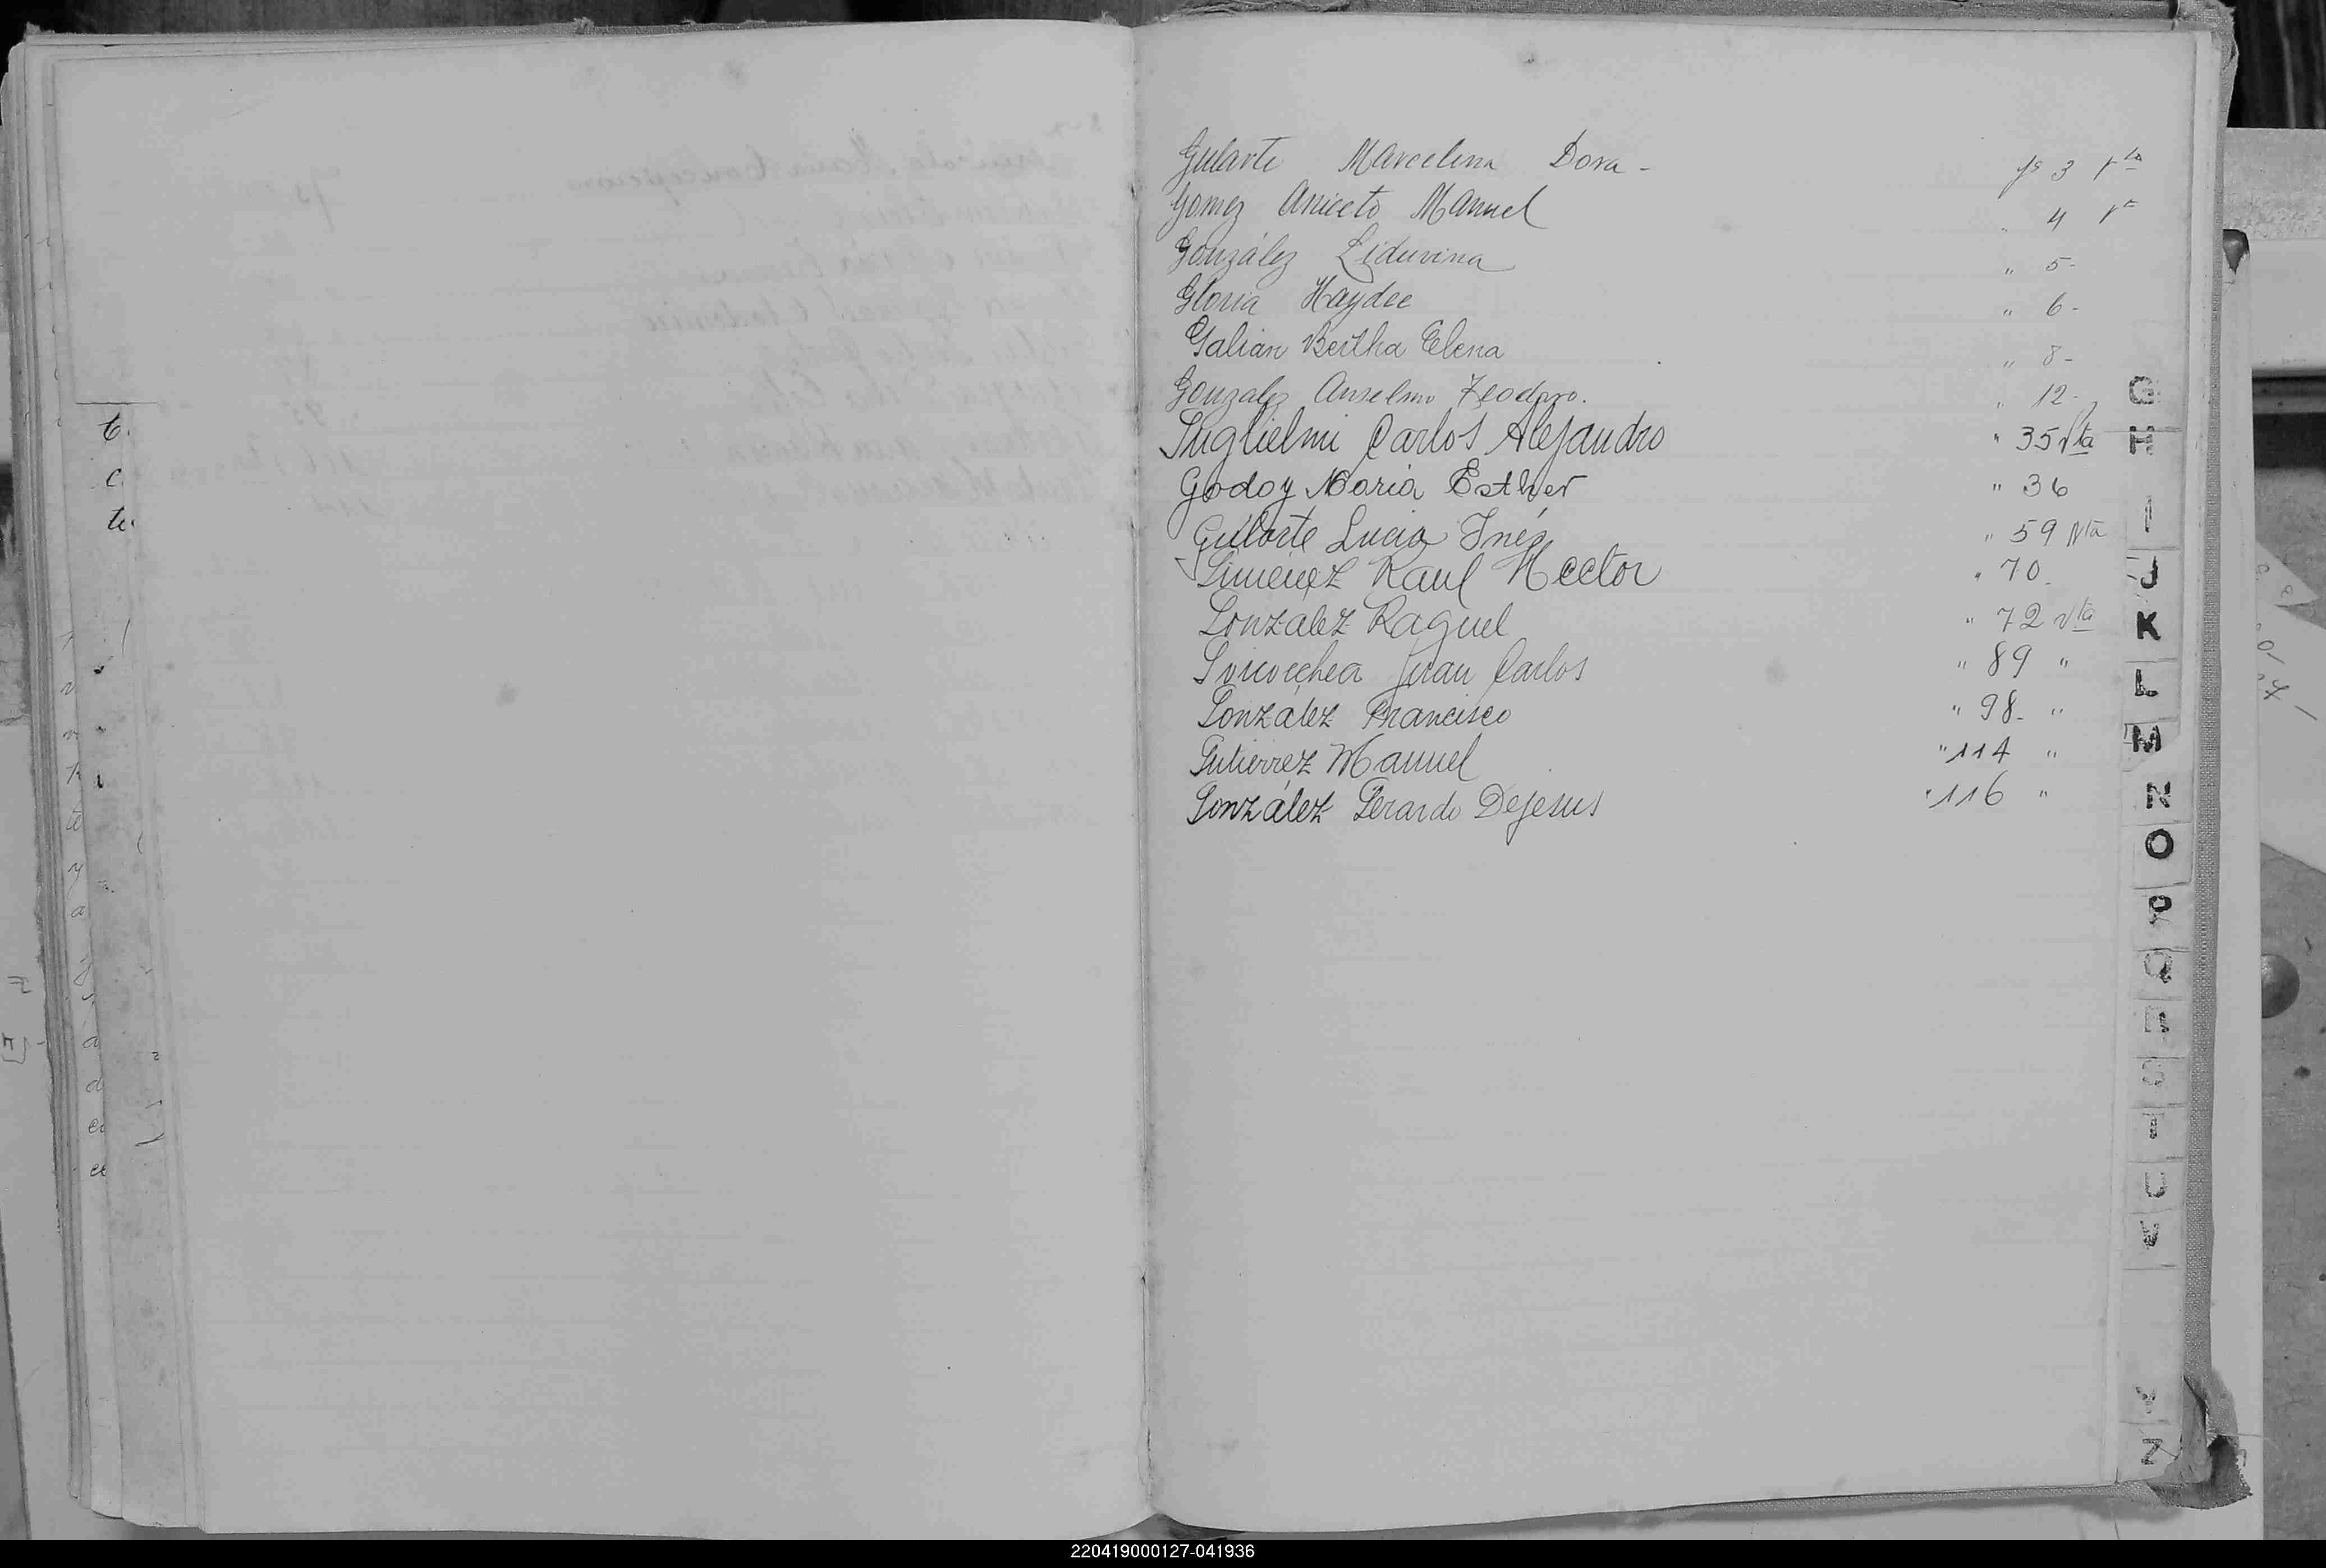 Gularte Marcelina Dora - fs 3 vta
Gomez Aniceto Manuel " 4 vta
González Liduvina " 5-
Gloria Haydee " 6-
Galian Bertha Elena " 8-
Gonzalez Anselmo Teodoro. " 12-
Guglielmi Carlos Alejandro " 35 vta
Godoy Maria Esther " 36
Gularte Lucia Inés " 59 vta
Gimenez Raul Hector " 70
Gonzalez Raquel " 72 vta
Goicoechea Juan Carlos " 89 "
González Francisco " 98- "
Gutierrez Manuel " 114 "
González Gerardo Dejesus " 116 "
G
H
I
J
K
L
M
N
O
P
Q
R
S
T
U
V
Y
Z
220419000127-041936